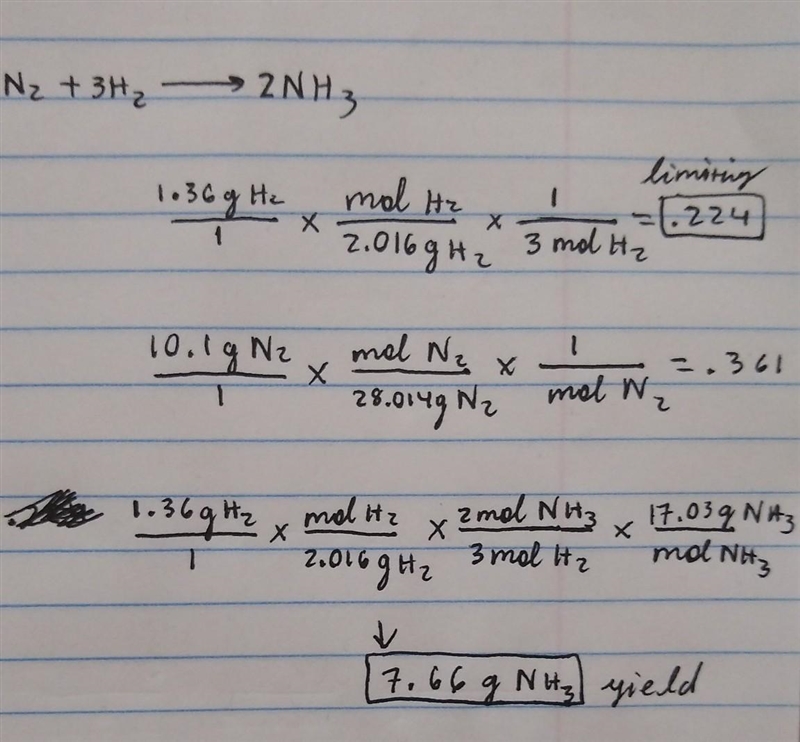 N₂ + 3H₂ ⟶ 2NH₃
limiting
1.36 g H₂ / 1 × mol H₂ / 2.016 g H₂ × 1 / 3 mol H₂ = .224
10.1 g N₂ / 1 × mol N₂ / 28.014 g N₂ × 1 / mol N₂ = .361
1.36 g H₂ / 1 × mol H₂ / 2.016 g H₂ × 2 mol NH₃ / 3 mol H₂ × 17.03 g NH₃ / mol NH₃
↓
7.66 g NH₃ yield